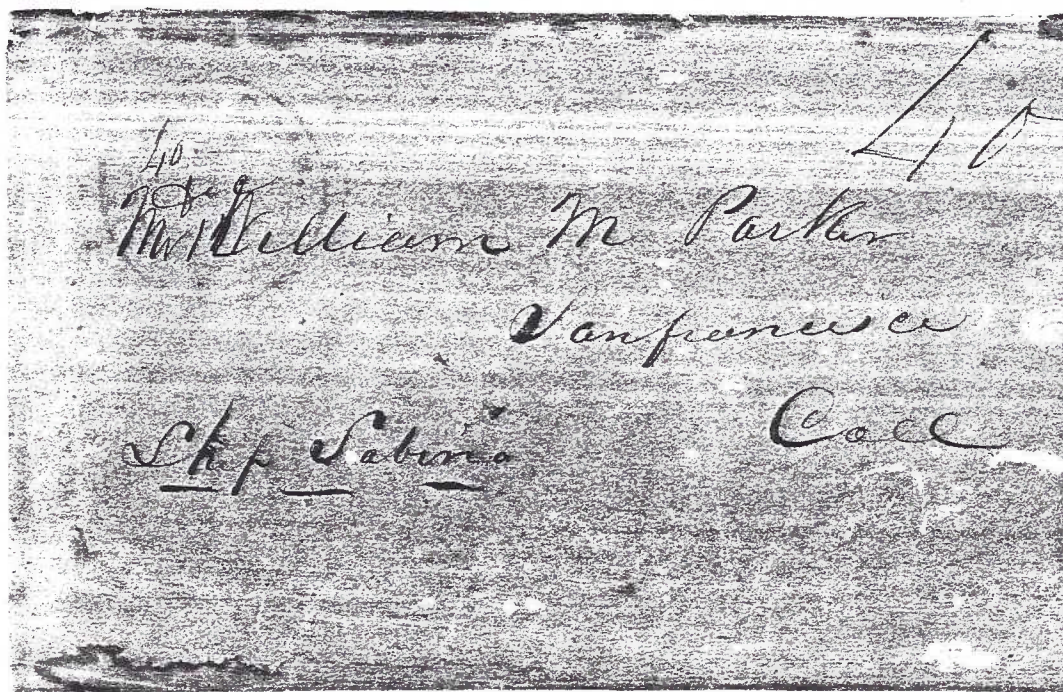 40
40
Mr William M Parker
Sanfrancisco
Call
Ship Sabina